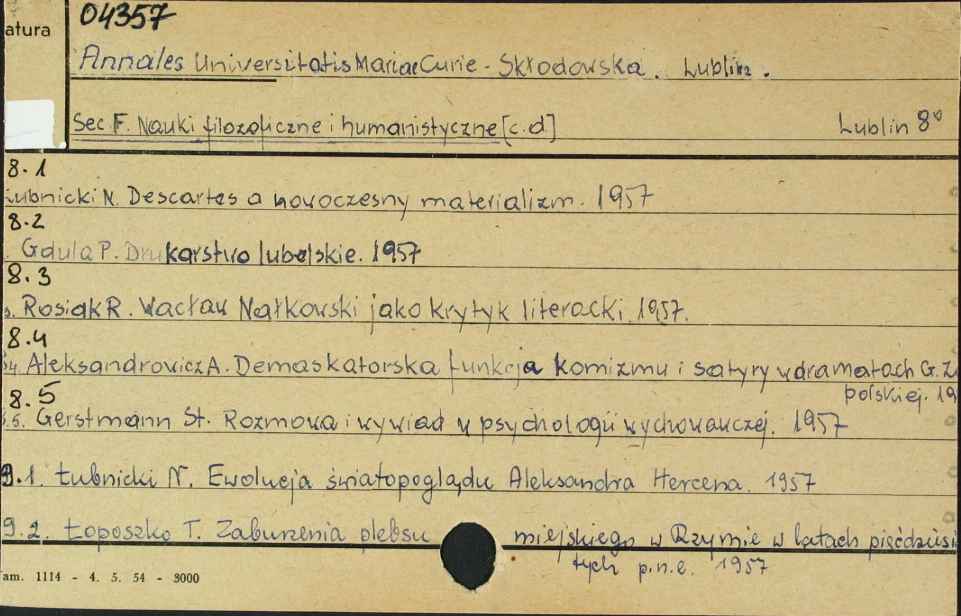 04357
atura
Annales Universitatis Mariae Curie - Skłodowska. Lublin.
Sec F. Nauki filozoficzne i humanistyczne [c.d] Lublin 8°
8.1
Łubnicki N. Descartes a nowoczesny materializm. 1957
8.2
Gdula P. Drukarstwo lubelskie. 1957
8.3
Rosiak R. Wacław Nałkowski jako krytyk literacki. 1957.
8.4
Aleksandrowicz A. Demaskatorska funkcja komizmu i satyry w dramatach G. Z
polskiej. 19
8.5
8.5. Gerstmann St. Rozmowa i wywiad w psychologii wychowawczej. 1957
9.1. Łubnicki N. Ewolucja światopoglądu Aleksandra Hercena. 1957
9.2. Łoposzko T. Zaburzenia plebsu miejskiego w Rzymie w latach pięćdziesi
tych p.n.e. 1957
am. 1114 - 4. 5. 54 - 3000